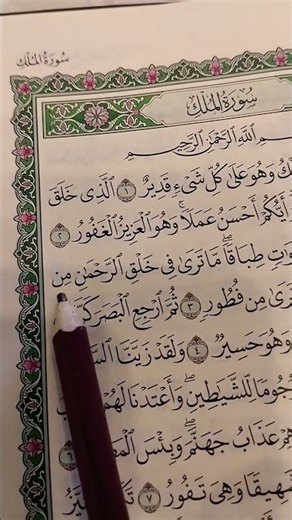 سُورَةُ المُلْكِ
سُورَةُ المُلْكِ
اللَّهِ الرَّحْمَٰنِ الرَّحِيمِ
وَهُوَ عَلَىٰ كُلِّ شَيْءٍ قَدِيرٌ ١ ٱلَّذِي خَلَقَ
أَيُّكُمْ أَحْسَنُ عَمَلًا ۚ وَهُوَ ٱلْعَزِيزُ ٱلْغَفُورُ ٢
طِبَاقًا ۖ مَّا تَرَىٰ فِي خَلْقِ ٱلرَّحْمَٰنِ مِن
تَرَىٰ مِن فُطُورٍ ٣ ثُمَّ ٱرْجِعِ ٱلْبَصَرَ
وَهُوَ حَسِيرٌ ٤ وَلَقَدْ زَيَّنَّا
رُجُومًا لِّلشَّيَٰطِينِ ۖ وَأَعْتَدْنَا لَهُمْ
عَذَابُ جَهَنَّمَ ۖ وَبِئْسَ ٦
شَهِيقًا وَهِيَ تَفُورُ ٧